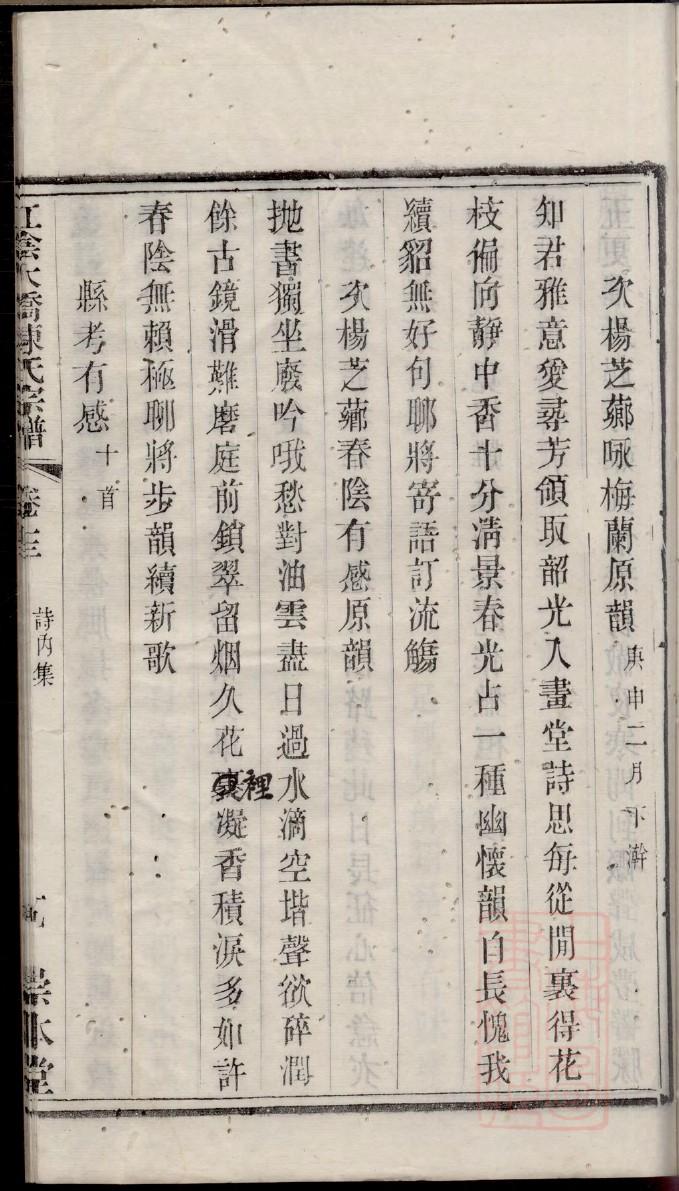 次楊芝薌咏梅蘭原韻 庚申二月下澣
知君雅意愛尋芳領取韶光入畫堂詩思每從閒裏得花
枝偏向靜中香十分清景春光占一種幽懷韻自長愧我
續貂無好句聊將寄語訂流觴
次楊芝薌春陰有感原韻
拋書獨坐廢吟哦愁對油雲盡日過水滴空堦聲欲碎潤
餘古鏡滑難磨庭前鎖翠留烟久花裡凝香積淚多如許
春陰無賴極聊將步韻續新歌
縣考有感 十首
江陰大橋陳氏宗譜 卷十三 詩內集 崇本堂